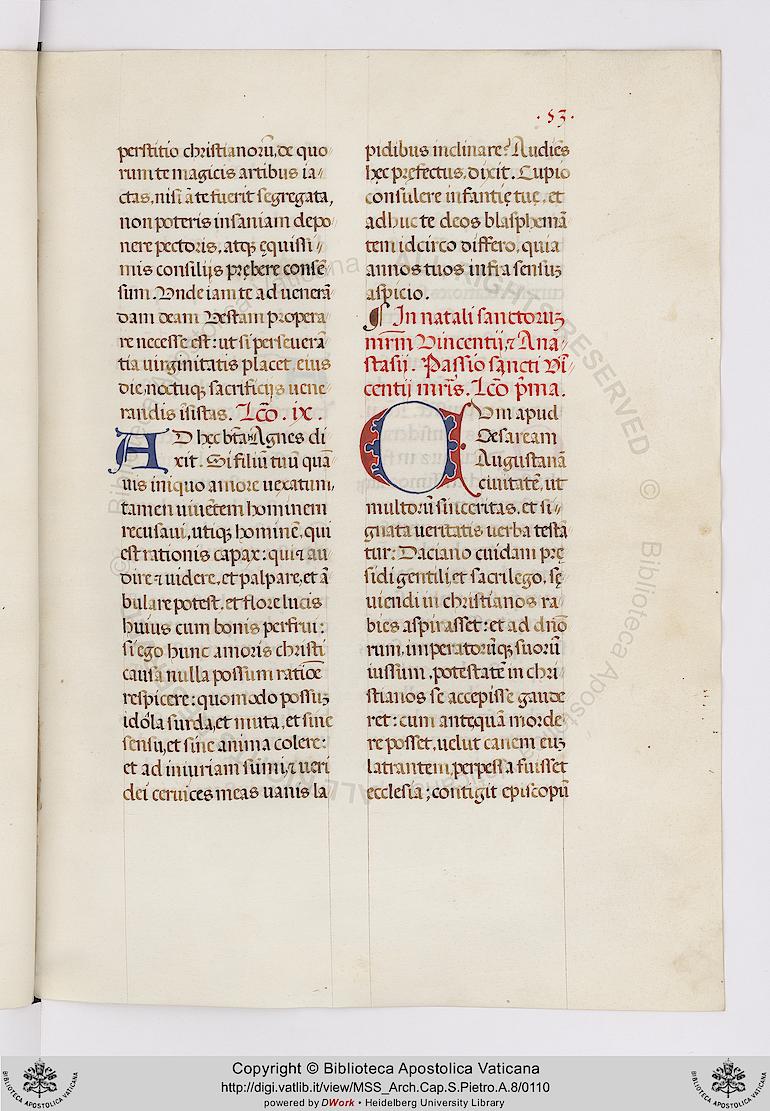 · 53 ·
perstitio christianorũ, de quo
rum te magicis artibus ia-
ctas, nisi a te fuerit segregata,
non poteris insaniam depo
nere pectoris, atq; ęquissi
mis consilijs prębere consẽ
sum. Vnde iam te ad venerã
dam deam Vestam propera
re necesse est: ut si perseuerã
tia virginitatis placet, eius
die, noctuq; sacrificijs vene
randis isistas. Lc̃o. ix.
AD hęc bt̃a Agnes di
xit. Si filiũ tuũ quã
uis iniquo amore vexatum,
tamen viuẽtem hominem
recusaui, utiq; hominẽ, qui
est rationis capax: qui ⁊ au
dire ⁊ videre, et palpare, et ã
bulare potest, et flore lucis
huius cum bonis perfrui:
si ego hunc amoris christi
causa nulla possum ratiõe
respicere: quomodo possuꝫ
idola surda, et muta, et sine
sensu, et sine anima colere:
et ad iniuriam sum̃i, ⁊ veri
dei ceruices meas vanis la
pidibus inclinare? Audiẽs
hęc pręfectus, dixit. Cupio
consulere infantię tuę, et
adhuc te deos blasphemã
tem idcirco differo, quia
annos tuos infra sensuꝫ
aspicio.
¶ In natali sanctoruꝫ
mr̃m Vincentij, ⁊ Ana
stasij. Passio sancti Vĩ
centij mr̃is. Lc̃o p̃ma.
CVm apud
Cesaream
Augustanã
ciuitatẽ, ut
multorũ sinceritas, et si
gnata veritatis verba testã
tur: Daciano cuidam prę
sidi gentili, et sacrilego, sę
uiendi in christianos ra
bies aspirasset: et ad dño
rum, imperatorũq; suorũ
iussum, potestatẽ in chri
stianos se accepisse gaude
ret: cum anteq̃uã morde
re posset, velut canem euꝫ
latrantem, perpessa fuisset
ecclesia; contigit episcopũ
Copyright © Biblioteca Apostolica Vaticana
http://digi.vatlib.it/view/MSS_Arch.Cap.S.Pietro.A.8/0110
powered by DWork • Heidelberg University Library
BIBLIOTECA APOSTOLICA VATICANA
BIBLIOTECA APOSTOLICA VATICANA
© Biblioteca Apostolica Vaticana ALL RIGHTS RESERVED © Biblioteca Apostolica Vaticana ALL RIGHTS RESERVED